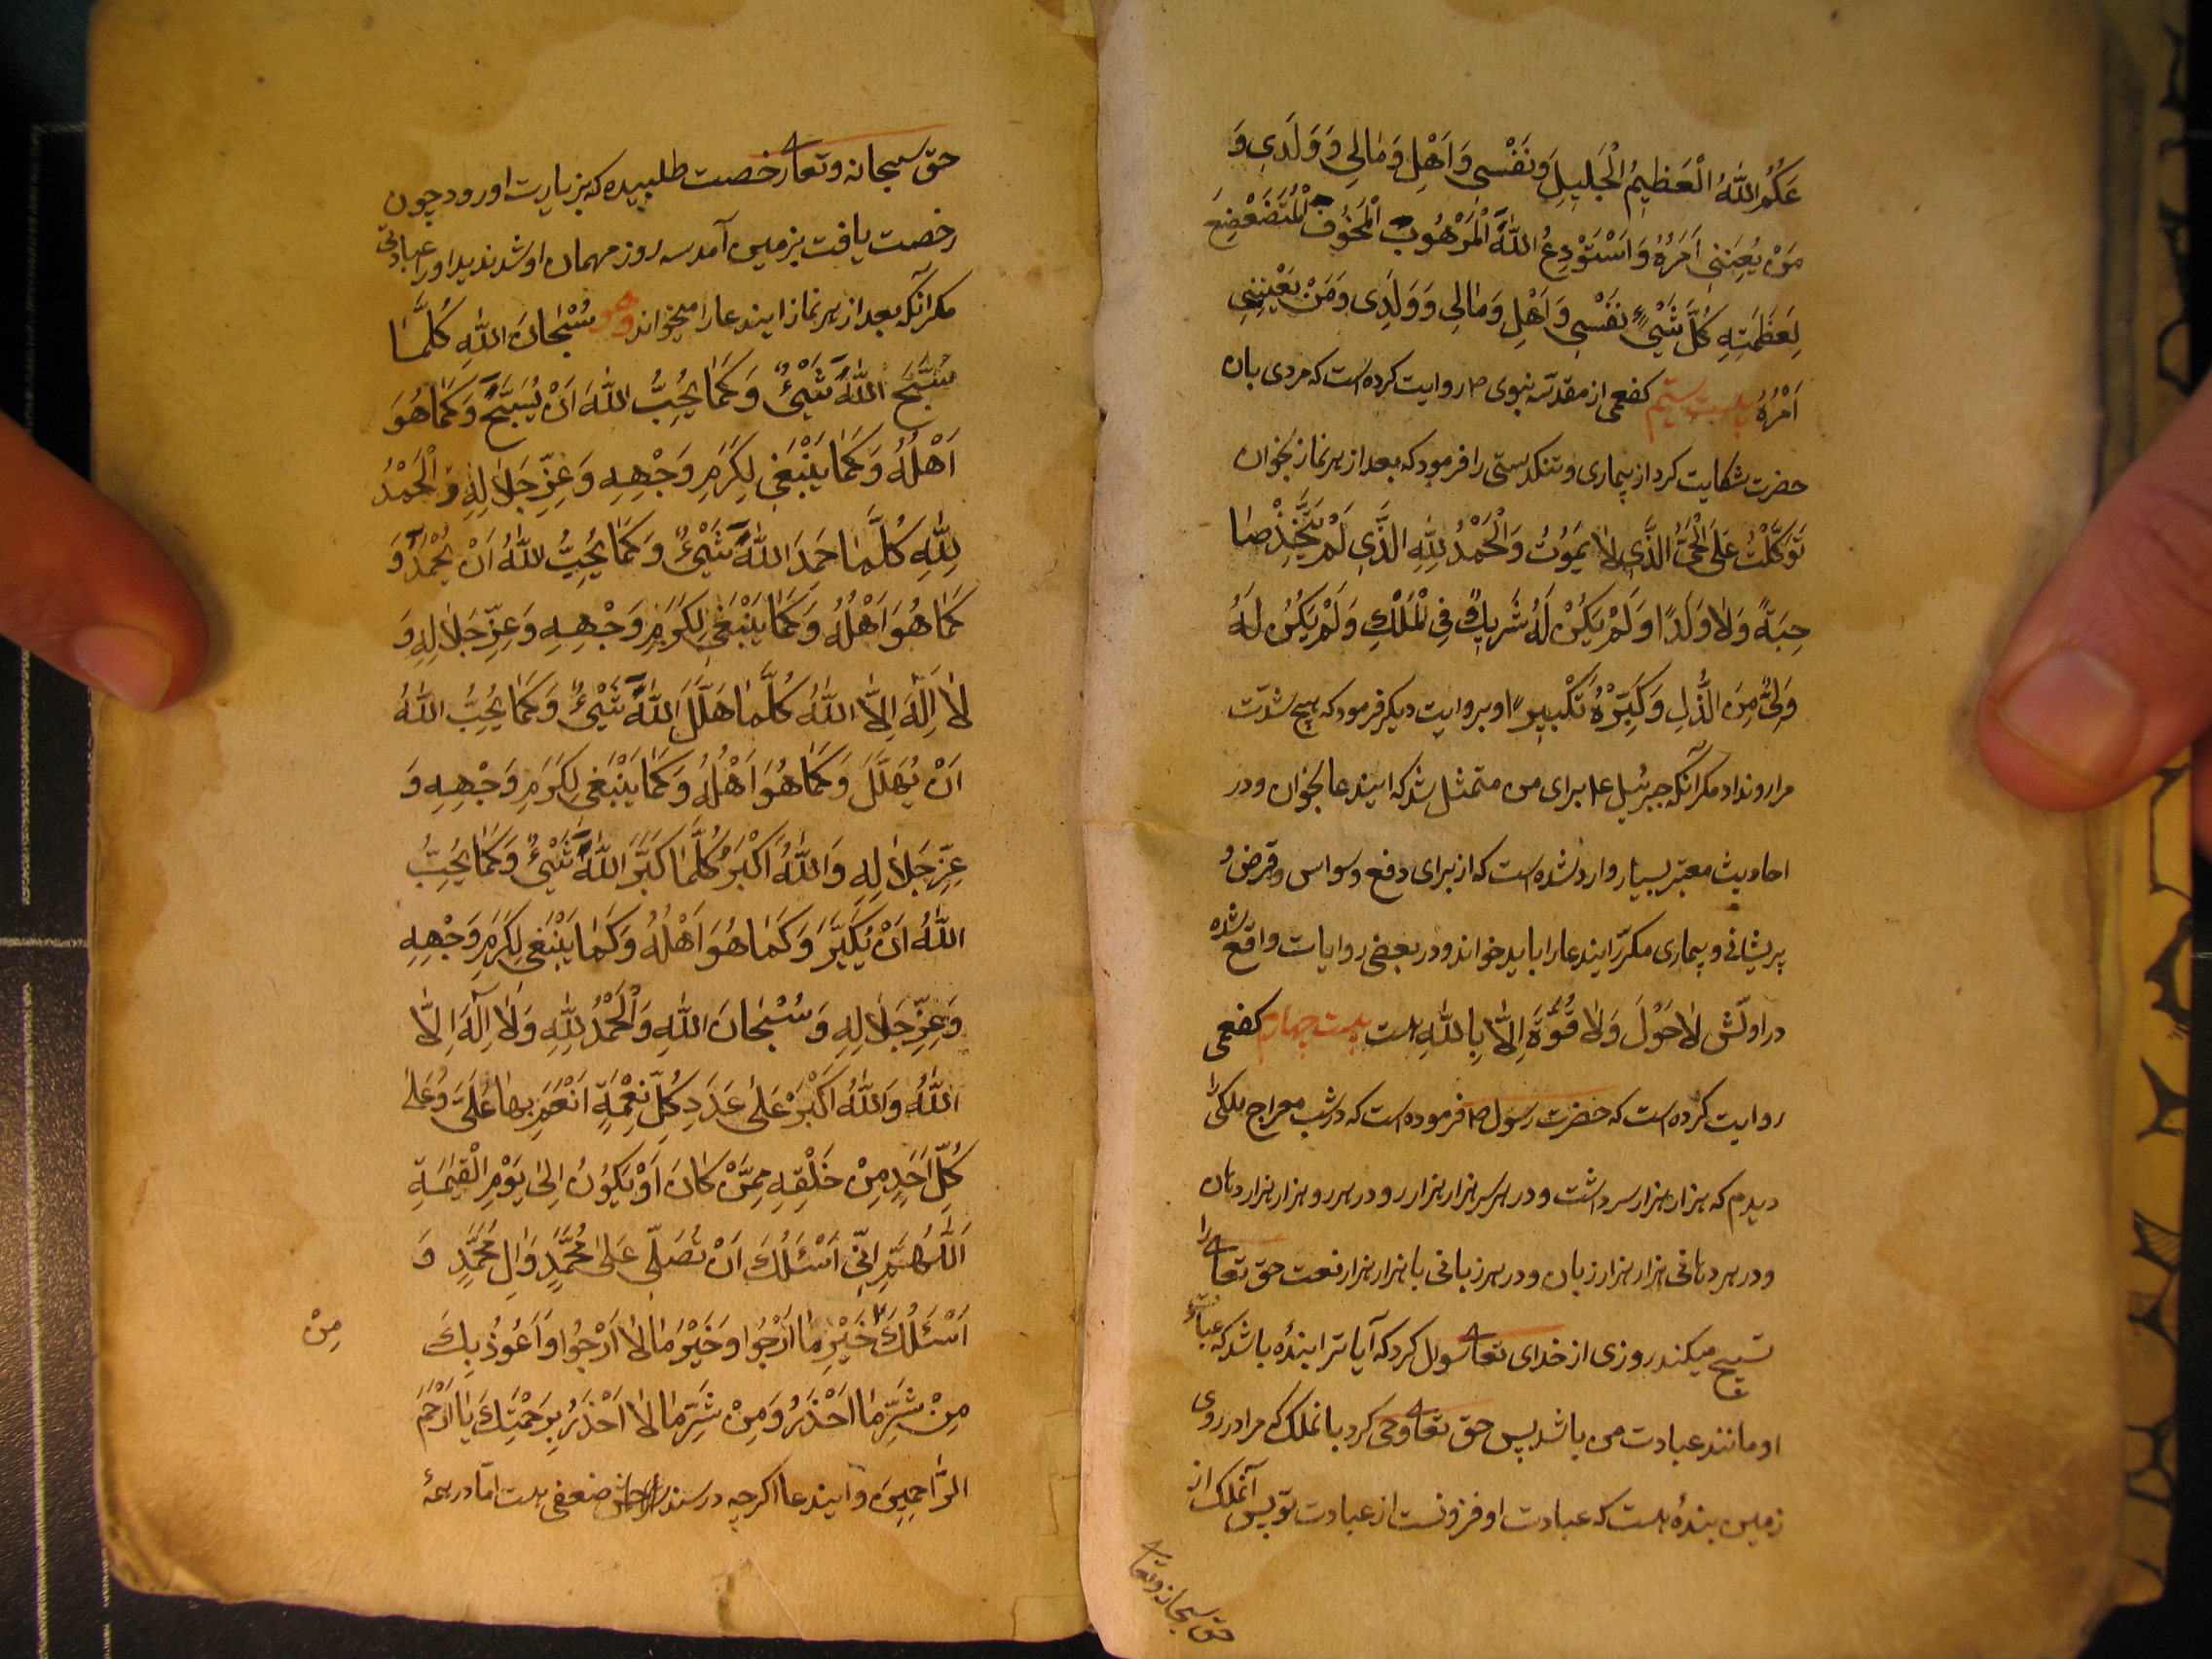 عَكُمُ اللّٰهُ الْعَظِيمُ الْجَلِيلِ وَنَفْسِى وَاَهْلِ وَمَالِي وَوَلَدِى وَ
مَنْ يُعِيَنِى اَمَرُهُ وَاَسْتَوْدِعُ اللّٰهَ الْمَرْهُوبَ الْمَخُوفُ الْمُتَضَعْضِعَ
لِعَظَمَتِهِ كُلَّ شَيْءٍ نَفْسِى وَاَهْلِ وَمَالِى وَوَلَدِى وَمَنْ يَعْنِينِى
اَمْرُهُ بیست سیم کفعمی از مقدسه نبوی ص روایت کرده است که مردی بان
حضرت شکایت کرد از بیماری و تنکدستی را فرمود که بعد از هر نماز بخوان
تَوَكَّلْتُ عَلَى الْحَىِّ الَّذِى لَا يَمُوتُ وَالْحَمْدُ لِلّٰهِ الَّذِى لَمْ يَتَّخِذْ صٰا
حِبَةً وَلٰا وَلَدًا وَلَمْ يَكُنْ لَهُ شَرِيكٌ فِى الْمُلْكِ وَلَمْ يَكُنْ لَهُ
وَلِىٌّ مِنَ الذُّلِ وَكَبِّرْهُ تَكْبِيرًا و بروایت دیکر فرمود که هیچ شدّت
مرا رو نداد مکر آنکه جبرئیل ع برای من متمثل شد که ایندعا بخوان و در
احادیث معتبر بسیار وارد شده است که از برای دفع وسواس و قرض و
پریشانی و بیماری مکرّر ایندعا را باید خواند و در بعضی روایات واقع شده
در اولّش لٰا حَوْلَ وَلٰا قُوَّةَ اِلّٰا بِاللّٰهِ است بیست چهارم کفعمی
روایت کرده است که حضرت رسول ص فرموده است که در شب معراج ملکی را
دیدم که هزار هزار سر داشت و در هر سر هزار هزار رو و در هر رو هزار هزار دهان
و در هر دهانی هزار هزار زبان و در هر زبانی با هزار هزار نعت حق تعالی را
تسبیح میکند روزی از خدای تعالی سوال کرد که آیا ترا بندهٔ باشد که عبادت
او مانند عبادت من باشد پس حق تعالی وحی کرد بانملک که مرا در روی
زمین بندهٔ هست که عبادت او فزونست از عبادت تو پس آنملک از
حق سبحانه و تعالی
حق سبحانه و تعالی رخصت طلبیده که بزیارت او رود چون
رخصت یافت بزمین آمد سه روز مهمان او شد ندید او را عبادتی
مکر آنکه بعد از هر نماز ایندعا را میخواند وهو سُبْحٰانَ اللّٰهِ كُلَّمٰا
سَبَّحَ اللّٰهَ شَيْءٌ وَكَمٰا يُحِبُّ اللّٰهَ اَنْ يُسَبَّحَ وَكَمٰا هُوَ
اَهْلُهُ وَكَمٰا يَنْبَغِى لِكَرَمِ وَجْهِهِ وَعِزِّ جَلٰالِهِ وَالْحَمْدُ
لِلّٰهِ كُلَّمٰا حَمِدَ اللّٰهَ شَيْءٌ وَكَمٰا يُحِبُّ اللّٰهُ اَنْ يُحْمَدَ وَ
كَمٰا هُوَ اَهْلُهُ وَكَمٰا يَنْبَغِى لِكَرَمِ وَجْهِهِ وَعِزِّ جَلٰالِهِ وَ
لٰا اِلٰهَ اِلَّا اللّٰهُ كُلَّمٰا هَلَّلَ اللّٰهَ شَيْءٌ وَكَمٰا يُحِبُّ اللّٰهُ
اَنْ يُهَلَّلَ وَكَمٰا هُوَ اَهْلُهُ وَكَمٰا يَنْبَغِى لِكَرَمِ وَجْهِهِ وَ
عِزِّ جَلٰالِهِ وَاللّٰهُ اَكْبَرُ كُلَّمٰا كَبَّرَ اللّٰهَ شَيْءٌ وَكَمٰا يُحِبُّ
اللّٰهُ اَنْ يُكَبَّرَ وَكَمٰا هُوَ اَهْلُهُ وَكَمٰا يَنْبَغِى لِكَرَمِ وَجْهِهِ
وَعِزِّ جَلٰالِهِ وَسُبْحٰانَ اللّٰهِ وَالْحَمْدُ لِلّٰهِ وَلٰا اِلٰهَ اِلَّا
اللّٰهُ وَاللّٰهُ اَكْبَرُ عَلٰى عَدَدِ كُلِّ نِعْمَةٍ اَنْعَمَ بِهٰا عَلَىَّ وَعَلٰى
كُلِّ اَحَدٍ مِنْ خَلْقِهِ مِمَّنْ كٰانَ اَوْ يَكُونُ اِلٰى يَوْمِ الْقِيٰمَةِ
اَللّٰهُمَّ اِنِّى اَسْئَلُكَ اَنْ تُصَلِّىَ عَلٰى مُحَمَّدٍ وَاٰلِ مُحَمَّدٍ وَ
اَسْئَلُكَ خَيْرِ مٰا اَرْجُوا وَخَيْرِ مٰا لٰا اَرْجُوا وَاَعُوذُ بِكَ
مِنْ
مِنْ شَرِّ مٰا اَحْذَرُ وَمِنْ شَرِّ مٰا لٰا اَحْذَرُ بِرَحْمَتِكَ يٰا اَرْحَمَ
الرّٰاحِمِينَ و ایندعا اکرچه در سندش ضعفی هست امّا در همهٔ